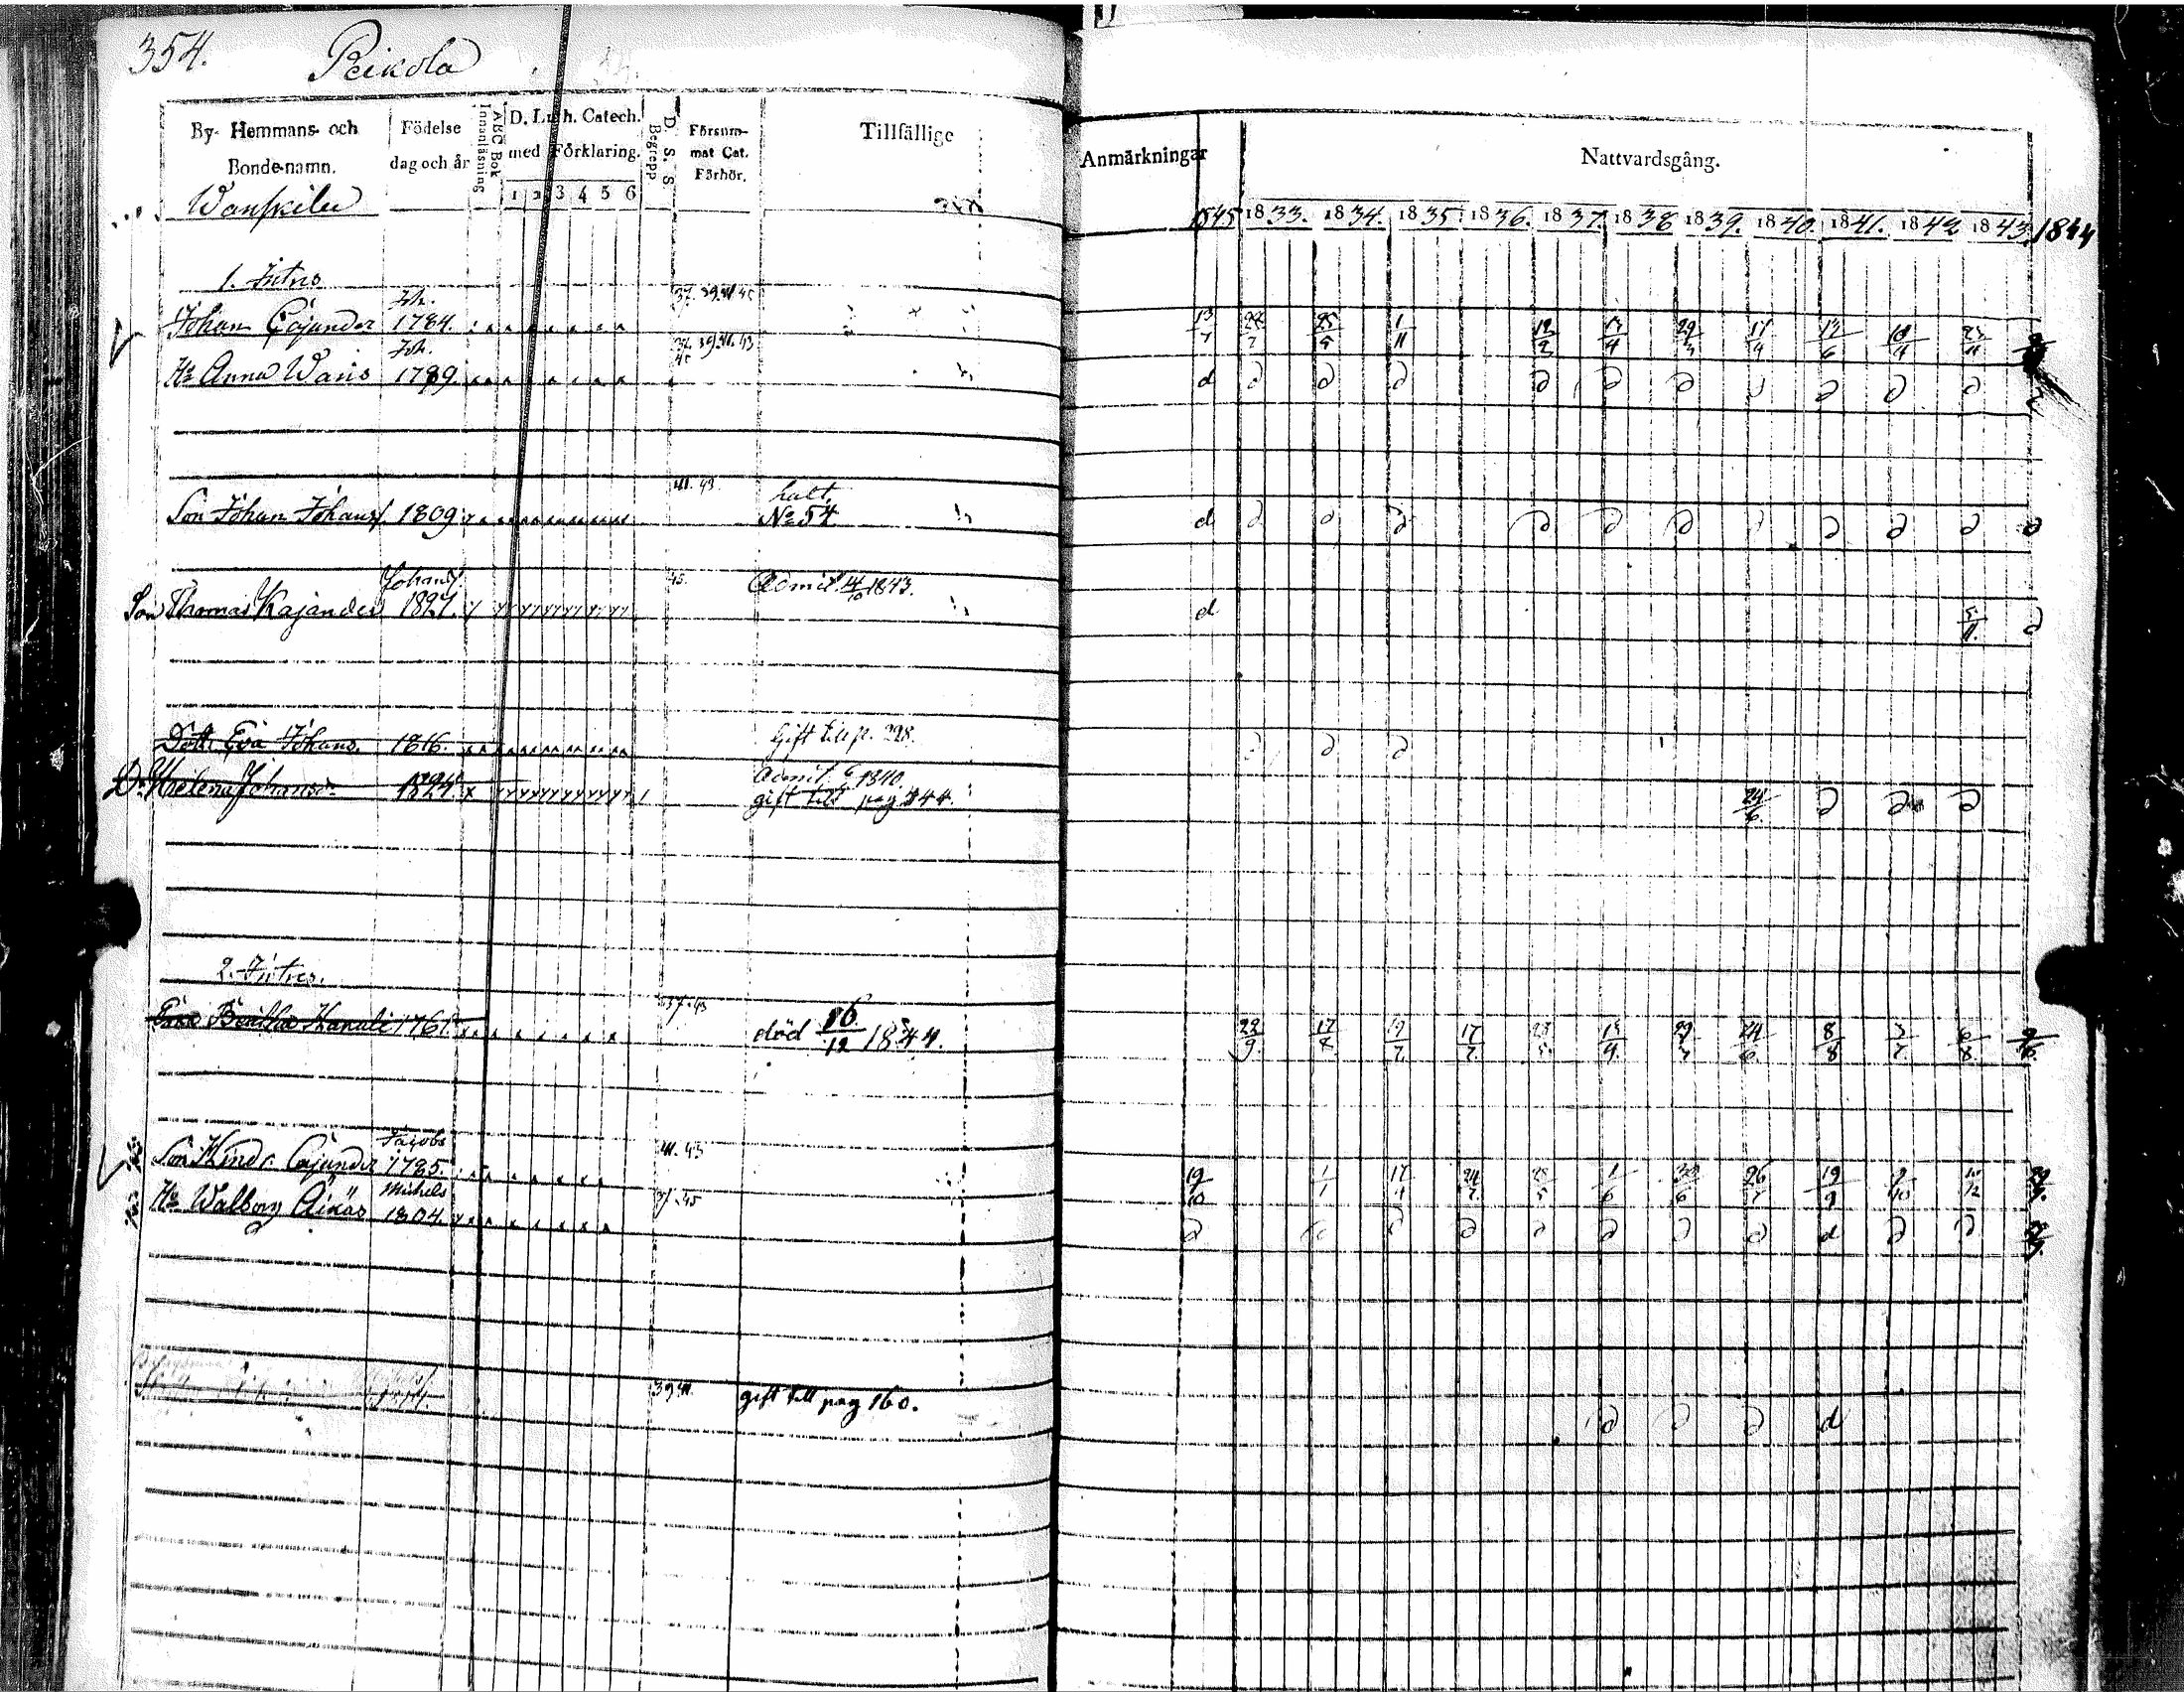 354. Peikola
By- Hemmans- och Bonde-namn.
Födelse dag och år
Innanläsning
ABC Bok
D. Luth. Catech. med Förklaring.
1 2 3 4 5 6
Begrepp
D. S. S
Försummat Cat. Förhör.
Tillfällige Anmärkningar
Nattvardsgång.
1845 1833. 1834. 1835. 1836. 1837. 1838 1839. 1840. 1841. 1842 1843. 1844
1. Intres
Joh.
37. 39. 41. 45
Johan Cajander 1784. 25/5 1/11 12/2 29/3 17/4 13/6
Joh.
39. 41. 43
45
Hu Anna Waris 1789. d d d d d d d d d d d
41. 43. halt.
Son Johan Johans. 1809 No 54 d d d d d d d d d d d d
Johans.
45. Admit. 14/10 1843.
Son Thomas Kajander 1827. d 5/11. d
Dottr Eva Johans. 1816. Gift till p. 228. d d d
Admit. 1840.
Dr. Helena Johansdr 1824. gift till pag 344. 24/6. d d d
2. Intres.
37. 43
Beatha Kanali 1761. död 16/12 1844. 22/9. 17/8 19/7 17/7 24/6. 8/8 3/7 6/8.
Jacobs
41. 43
Son Hindr. Cajander 1785. 19/10 1/1 17/4 24/7 28/5 1/6 30/6 26/7 19/9 9/10 10/12 29/9.
Michels
37. 45
Hu Walborg Äikäs 1804. d d d d d d d d d d
39 41. gift till pag 160. d d d d